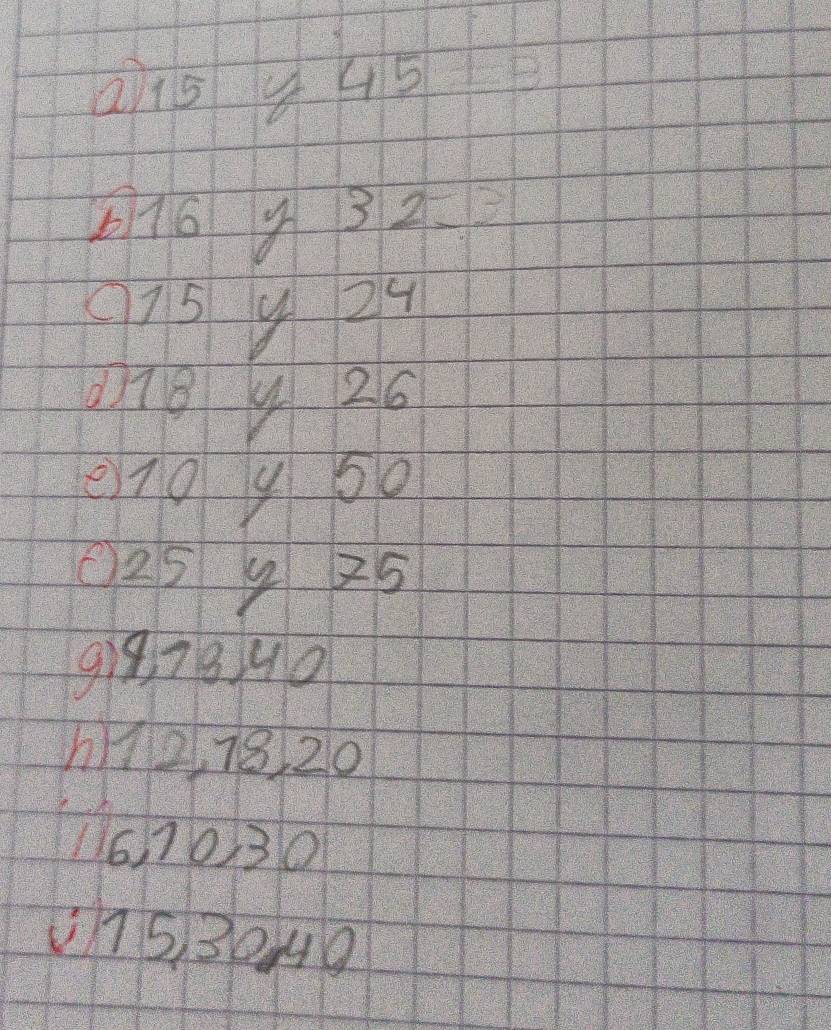 a) 15 y 45
b) 16 y 32
c) 15 y 24
d) 18 y 26
e) 10 y 50
f) 25 y 75
g) 8, 18, 40
h) 12, 18, 20
i) 6, 10, 30
j) 15, 30, 40